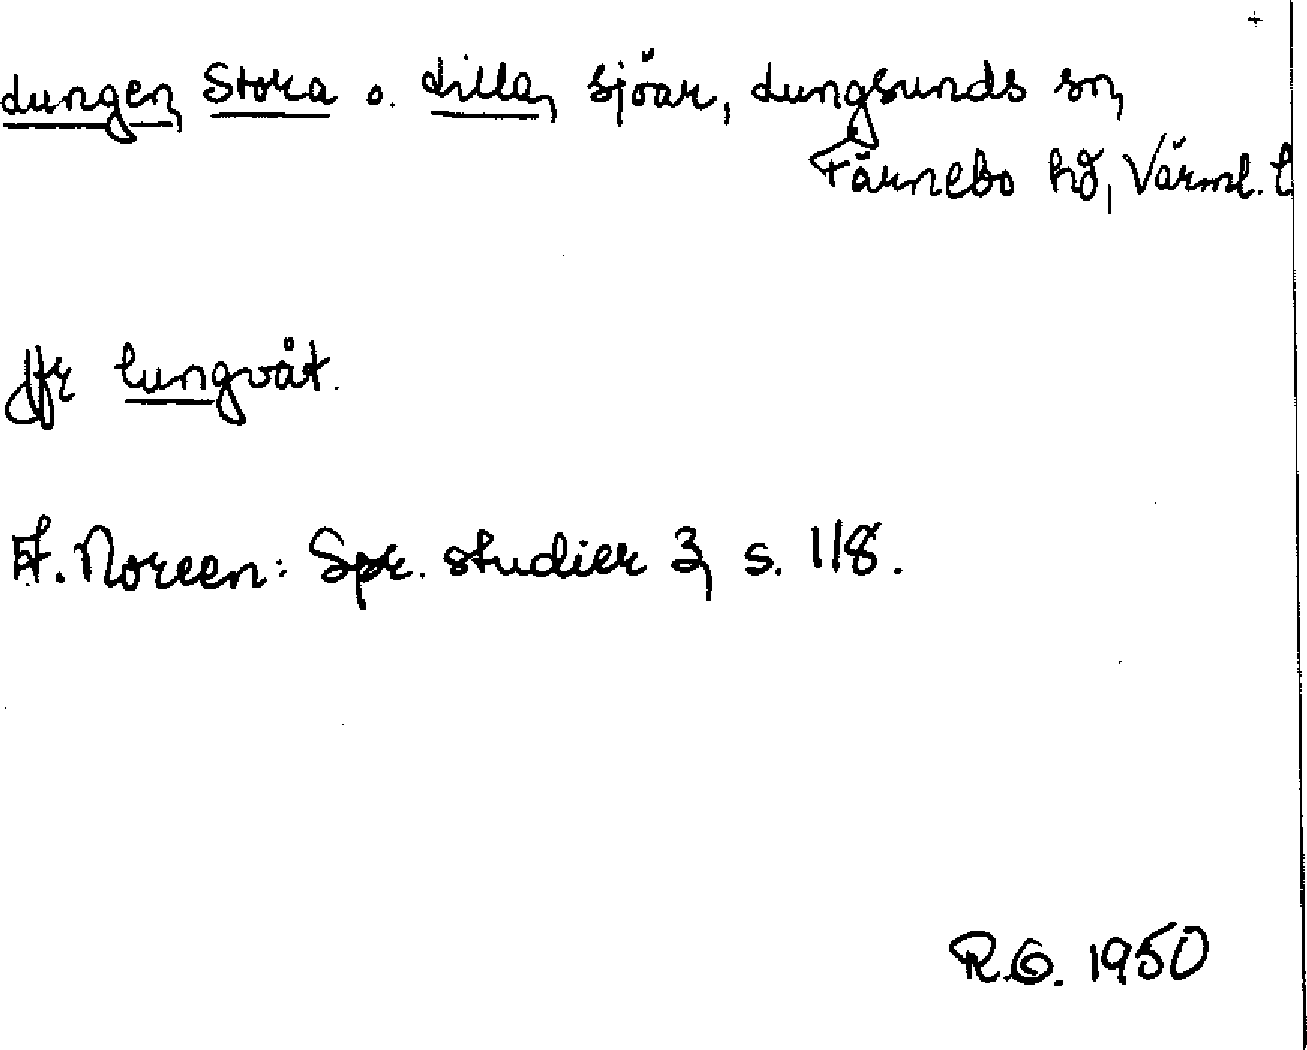 Lungen, Stora o. Lilla, sjöar, Lungsunds sn,
Färnebo hd, Värml. l
Jfr lungvåt.
E. Noreen: Spr. studier 3, s. 118.
R.G. 1950